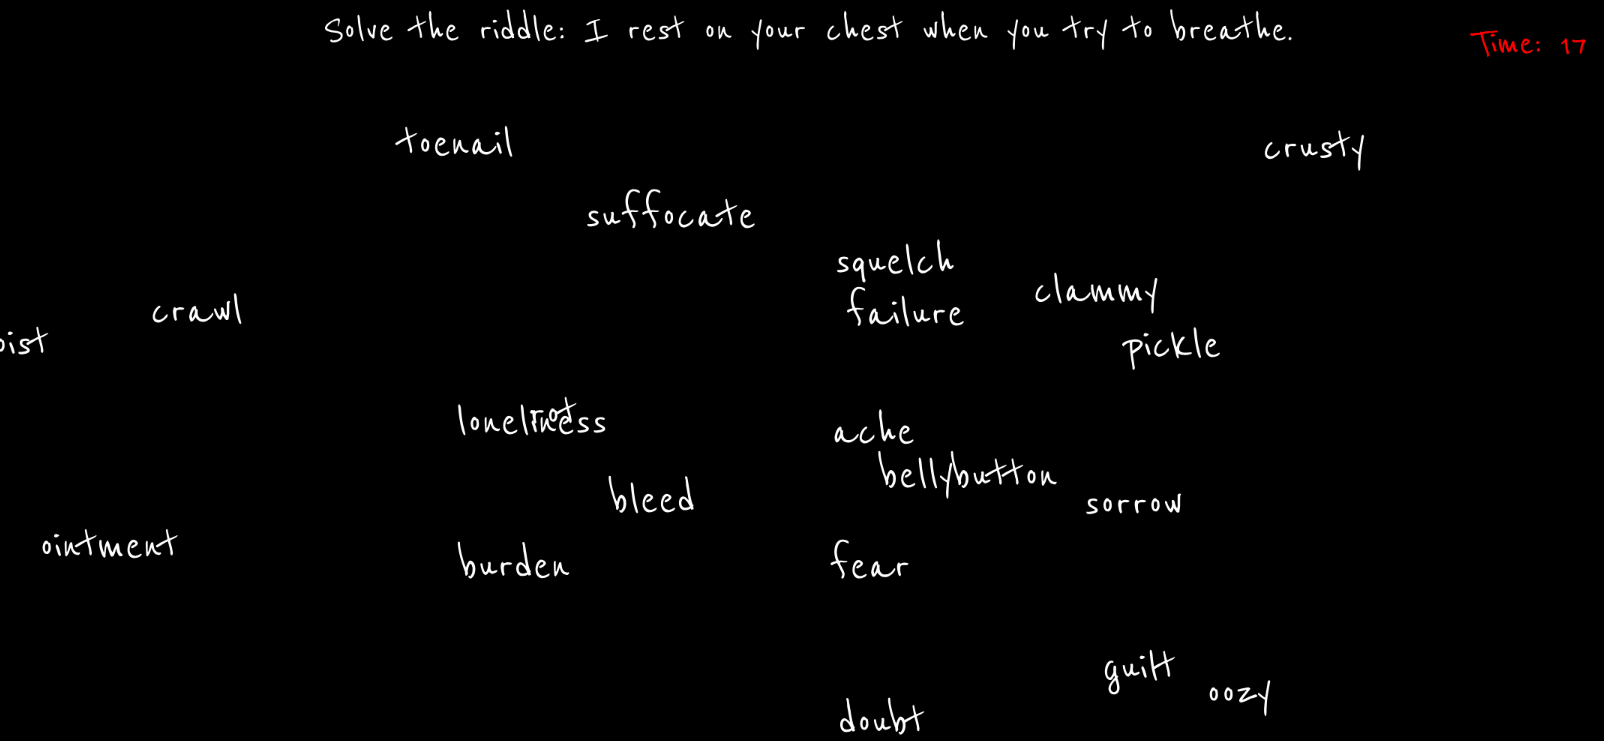 Solve the riddle: I rest on your chest when you try to breathe.
Time: 17
toenail
crusty
suffocate
squelch
clammy
crawl
failure
oist
pickle
loneliness
rot
ache
bellybutton
bleed
sorrow
ointment
burden
fear
guilt
oozy
doubt